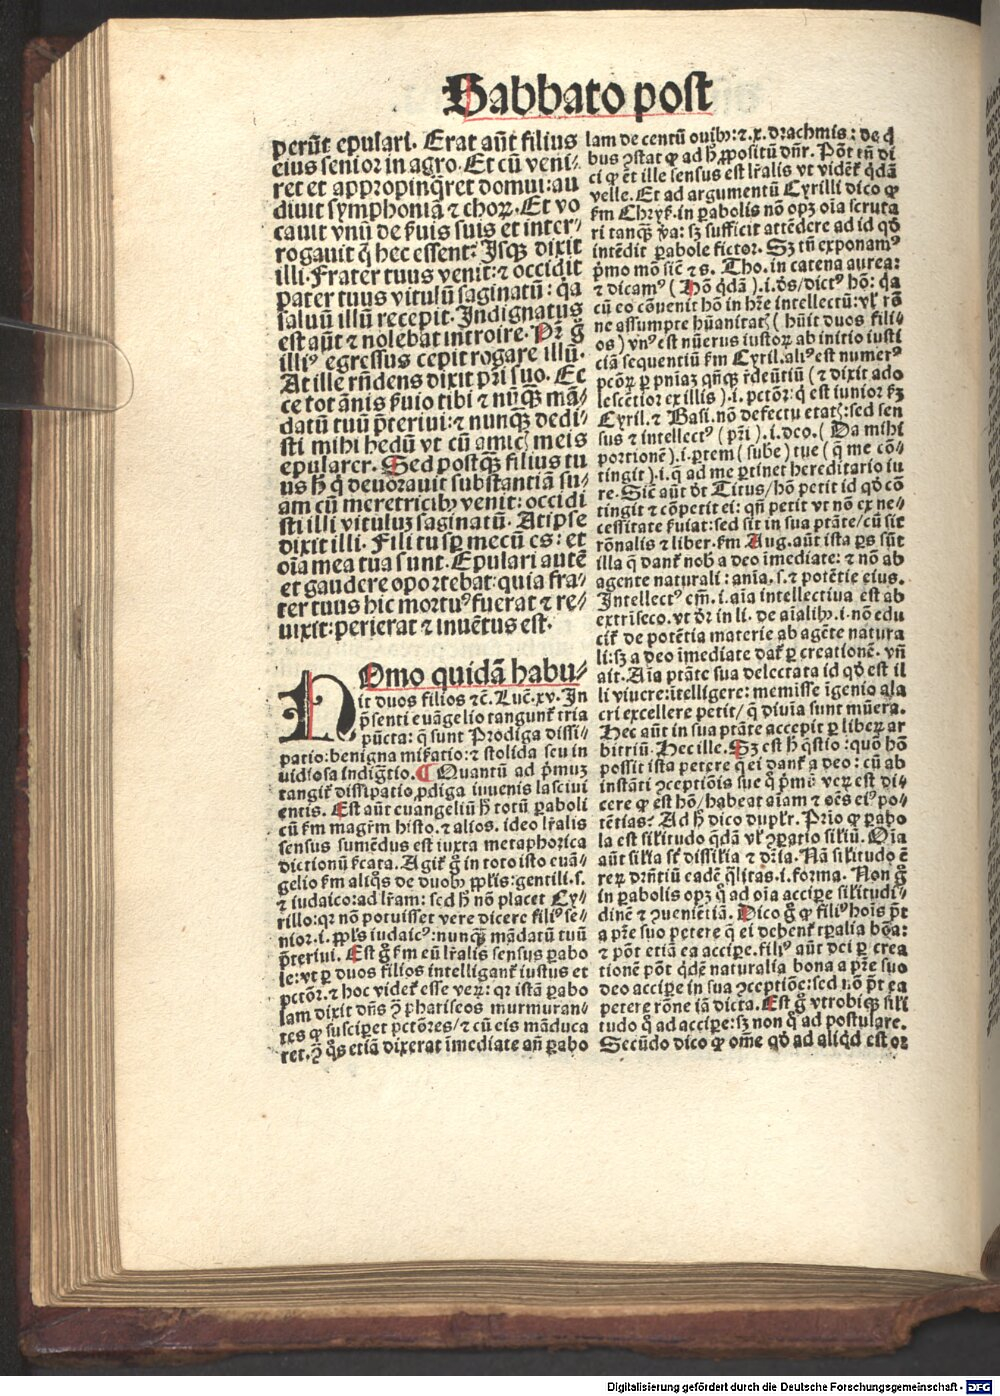 Sabbato post
perũt epulari. Erat aũt filius
eius senior in agro. Et cũ veni⸗
ret et appropinq̃ret domui: au
diuit symphoniã ⁊ choꝝ. Et vo
cauit vnũ de ẜuis suis et inter⸗
rogauit q̃ hec essent. Isqꝫ dixit
illi. Frater tuus venit: ⁊ occidit
pater tuus vitulũ saginatũ: qa
saluũ illũ recepit. Indignatus
est aũt ⁊ nolebat introire. Pr̃ g̊
illiꝰ egressus cepit rogare illũ.
At ille rñdens dixit pr̃i suo. Ec
ce tot ãnis ẜuio tibi ⁊ nũqꝫ mã⸗
datũ tuũ p̃teriui: ⁊ nunqꝫ dedi⸗
sti mihi hedũ vt cũ amicꝭ meis
epularer. Sed postqꝫ filius tu
us hꝰ qͥ deuorauit substantiã su⸗
am cũ meretricibꝰ venit: occidi
sti illi vituluꝫ saginatũ. At ipse
dixit illi. Fili tu sꝑ mecũ es: et
oĩa mea tua sunt. Epulari autẽ
et gaudere oportebat: quia fra⸗
ter tuus hic mortuꝰ fuerat ⁊ re⸗
uixit: perierat ⁊ inuẽtus est.
HOmo quidã habu⸗
it duos filios ⁊c̃. Luc̃. xv. In
p̃senti euãgelio tangunt᷑ tria
pũcta: q̃ sunt Prodiga dissi⸗
patio: benigna miẜatio: ⁊ stolida seu in
uidiosa indigtio. ¶ Quantũ ad pͥmuꝫ
tangit᷑ dissipatio ꝓdiga iuuenis lasciui
entis. Est aũt euangeliũ h̊ totũ ꝑaboli
cũ ẜm magr̃m histo. ⁊ alios. ideo lr̃alis
sensus sumẽdus est iuxta metaphorica
dictionũ ẜcata. Agit᷑ g̊ in toto isto euã⸗
gelio ẜm aliq̊s de duobꝰ pplis: gentili. s.
⁊ iudaico: ad lr̃am: sed h̊ nõ placet Cy⸗
rillo: qꝛ nõ potuisset vere dicere filiꝰ se⸗
nior. i. ppl̃s iudaicꝰ: nunqꝫ mãdatũ tuũ
p̃teriui. Est g̊ ẜm eũ lr̃alis sensus ꝑabo
le: vt ꝑ duos filios intelligant᷑ iustus et
pctõr. ⁊ hoc videt᷑ esse veꝝ: qꝛ istã ꝑabo
lam dixit dñs ꝯ̃ phariseos murmuran⸗
tes ꝙ susciꝑet pctõres/ ⁊ cũ eis mãduca
ret. ꝯ̃ q̊s etiã dixerat ĩmediate añ ꝑabo
lam de centũ ouibꝰ: ⁊. x. drachmis: de qͥ
bus ꝯstat ꝙ ad h̊ ꝓpositũ dñr. Põt tñ di
ci ꝙ ẽt ille sensus est lr̃alis vt vident᷑ qͥdã
velle. Et ad argumentũ Cyrilli dico ꝙ
ẜm Chrys. in ꝑabolis nõ opꝫ oĩa scruta
ri tanqꝫ v̾a: sꝫ sufficit attẽdere ad id qd̊
intẽdit ꝑabole fictor. Sꝫ tñ exponamꝰ
pͥmo mõ sic̃ ⁊ s. Tho. in catena aurea:
⁊ dicamꝰ (Hõ qͥdã). i. dẽs/ dictꝰ hõ: qa
cũ eo cõuenit hõ in hr̃e intellectũ: vl̃ rõ
ne assumpte hũanitatꝭ (hũit duos fili⸗
os) vnꝰ est nũerus iustoꝝ ab initio iusti
ciã sequentiũ ẜm Cyril. aliꝰ est numerꝰ
pctõꝝ ꝑ pniãꝫ qñqꝫ r̾deũtiũ (⁊ dixit ado
lescẽtior ex illis). i. pctõr: qͥ est iunior ẜꝫ
Cyril. ⁊ Basi. nõ defectu etatꝭ: sed sen
sus ⁊ intellectꝰ (pr̃i). i. deo. (Da mihi
portionẽ). i. ꝑtem (sube) tue (q̃ me cõ⸗
tingit). i. q̃ ad me ꝑtinet hereditario iu
re. Sic̃ aũt dt̃ Titus/ hõ petit id qd̊ cõ
tingit ⁊ cõpetit ei: qñ petit vt nõ ex ne⸗
cessitate ẜuiat: sed sit in sua ptãte/ cũ sit
rõnalis ⁊ liber. ẜm Aug. aũt ista ꝑs sũt
illa q̃ dant᷑ nob̃ a deo ĩmediate: ⁊ nõ ab
agente naturali: anĩa. s. ⁊ potẽtie eius.
Intellectꝰ em̃. i. aĩa intellectiua est ab
extrĩseco. vt dr̃ in li. de aĩalibꝰ. i. nõ edu
cit᷑ de potẽtia materie ab agẽte natura
li: sꝫ a deo ĩmediate dat᷑ ꝑ creationẽ. vñ
ait. Aĩa ptãte sua delectata id qd̊ est il
li viuere: ĩtelligere: memisse ĩgenio ala
cri excellere petit/ q̃ diuĩa sunt mũera.
Hec aũt in sua ptãte accepit ꝑ liberꝝ ar
bitriũ. Hec ille. Sꝫ est h̊ q̃stio: quõ hõ
possit ista petere q̃ ei dant᷑ a deo: cũ ab
instãti ꝯceptiõis sue q̃ pͥmẽ veꝝ est di⸗
cere ꝙ est hõ/ habeat aĩam ⁊ oẽs eiꝰ po⸗
tẽtias? Ad h̊ dico duplr̃. Prĩo ꝙ ꝑabo
la est silitudo qͥdã vl̃ ꝯꝑatio siliũ. Oĩa
aũt silia sũt dissilia ⁊ dr̃ia. Nã silitudo ẽ
reꝝ dr̃ntiũ eadẽ q̃litas. i. forma. Non g̊
in ꝑabolis opꝫ q̃ ad oĩa accipe silitudi⸗
dinẽ ⁊ ꝯueniẽtiã. Dico g̊ ꝙ filiꝰ hoĩs p̃t
a pr̃e suo petere q̃ ei debent᷑ tꝑalia bõa:
⁊ põt etiã ea accipe. filiꝰ aũt dei ꝑ crea
tionẽ põt qͥdẽ naturalia bona a pr̃e suo
deo accipe in sua ꝯceptiõe: sed nõ p̃t ea
petere rõne iã dicta. Est g̊ vtrobiqꝫ sili
tudo q̃ ad accipe: sꝫ non q̃ ad postulare.
Secũdo dico ꝙ om̃e qd̊ ad aliqͥd est oꝛ
Digitalisierung gefördert durch die Deutsche Forschungsgemeinschaft - DFG